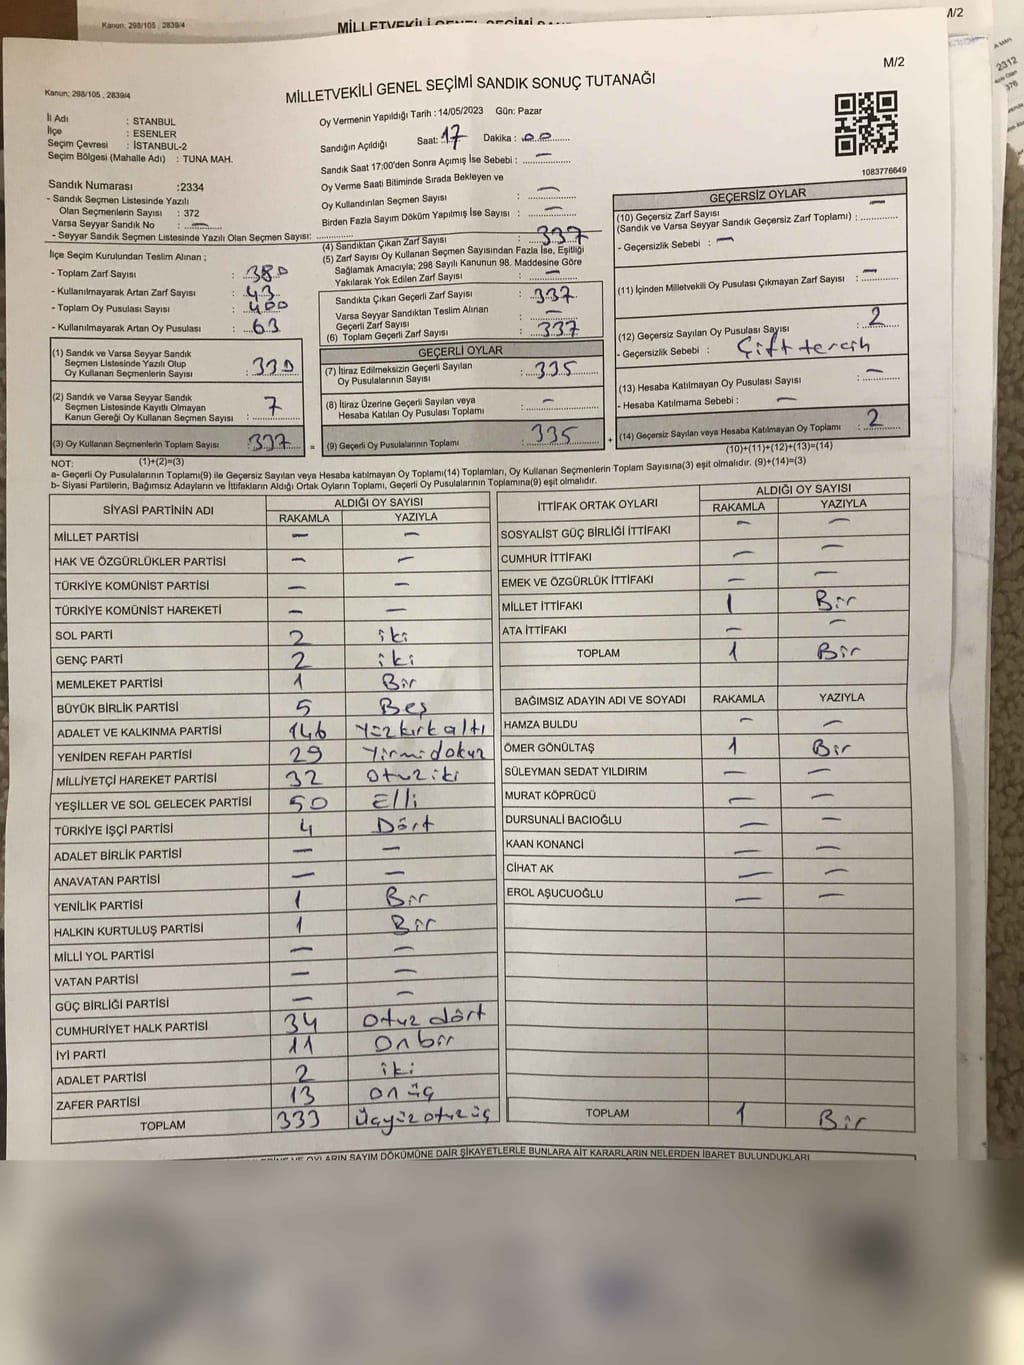 Kanun: 298/105 , 2839/4
M/2
Kanun: 298/105 , 2839/4
M/2
MİLLETVEKİLİ GENEL SEÇİMİ SANDIK SONUÇ TUTANAĞI
İl Adı : İSTANBUL
İlçe : ESENLER
Seçim Çevresi : İSTANBUL-2
Seçim Bölgesi (Mahalle Adı) : TUNA MAH.
Oy Vermenin Yapıldığı Tarih : 14/05/2023 Gün: Pazar
Sandığın Açıldığı Saat: 17 Dakika : 00
Sandık Saat 17:00'den Sonra Açımış İse Sebebi : —
Oy Verme Saati Bitiminde Sırada Bekleyen ve
Oy Kullandırılan Seçmen Sayısı : —
Birden Fazla Sayım Döküm Yapılmış İse Sayısı : —
1083776649
Sandık Numarası :2334
- Sandık Seçmen Listesinde Yazılı
Olan Seçmenlerin Sayısı : 372
Varsa Seyyar Sandık No : —
- Seyyar Sandık Seçmen Listesinde Yazılı Olan Seçmen Sayısı:
İlçe Seçim Kurulundan Teslim Alınan ;
- Toplam Zarf Sayısı : 380
- Kullanılmayarak Artan Zarf Sayısı : 43
- Toplam Oy Pusulası Sayısı : 400
- Kullanılmayarak Artan Oy Pusulası : 63
(1) Sandık ve Varsa Seyyar Sandık
Seçmen Listesinde Yazılı Olup
Oy Kullanan Seçmenlerin Sayısı : 330
(2) Sandık ve Varsa Seyyar Sandık
Seçmen Listesinde Kayıtlı Olmayan
Kanun Gereği Oy Kullanan Seçmen Sayısı : 7
(3) Oy Kullanan Seçmenlerin Toplam Sayısı : 337
(1)+(2)=(3)
(4) Sandıktan Çıkan Zarf Sayısı : 337
(5) Zarf Sayısı Oy Kullanan Seçmen Sayısından Fazla İse, Eşitliği
Sağlamak Amacıyla; 298 Sayılı Kanunun 98. Maddesine Göre
Yakılarak Yok Edilen Zarf Sayısı : —
Sandıkta Çıkan Geçerli Zarf Sayısı : 337
Varsa Seyyar Sandıktan Teslim Alınan
Geçerli Zarf Sayısı : —
(6) Toplam Geçerli Zarf Sayısı : 337
GEÇERLİ OYLAR
(7) İtiraz Edilmeksizin Geçerli Sayılan
Oy Pusulalarının Sayısı : 335
(8) İtiraz Üzerine Geçerli Sayılan veya
Hesaba Katılan Oy Pusulası Toplamı : —
= (9) Geçerli Oy Pusulalarının Toplamı : 335
GEÇERSİZ OYLAR
(10) Geçersiz Zarf Sayısı
(Sandık ve Varsa Seyyar Sandık Geçersiz Zarf Toplamı) : —
- Geçersizlik Sebebi : —
(11) İçinden Milletvekili Oy Pusulası Çıkmayan Zarf Sayısı : —
(12) Geçersiz Sayılan Oy Pusulası Sayısı : 2
- Geçersizlik Sebebi : Çift tercih
(13) Hesaba Katılmayan Oy Pusulası Sayısı : —
- Hesaba Katılmama Sebebi : —
+ (14) Geçersiz Sayılan veya Hesaba Katılmayan Oy Toplamı : 2
(10)+(11)+(12)+(13)=(14)
NOT:
a- Geçerli Oy Pusulalarının Toplamı(9) ile Geçersiz Sayılan veya Hesaba katılmayan Oy Toplamı(14) Toplamları, Oy Kullanan Seçmenlerin Toplam Sayısına(3) eşit olmalıdır. (9)+(14)=(3)
b- Siyasi Partilerin, Bağımsız Adayların ve İttifakların Aldığı Ortak Oyların Toplamı, Geçerli Oy Pusulalarının Toplamına(9) eşit olmalıdır.
SİYASİ PARTİNİN ADI ALDIĞI OY SAYISI
RAKAMLA YAZIYLA
MİLLET PARTİSİ — —
HAK VE ÖZGÜRLÜKLER PARTİSİ — —
TÜRKİYE KOMÜNİST PARTİSİ — —
TÜRKİYE KOMÜNİST HAREKETİ — —
SOL PARTİ 2 iki
GENÇ PARTİ 2 iki
MEMLEKET PARTİSİ 1 Bir
BÜYÜK BİRLİK PARTİSİ 5 Beş
ADALET VE KALKINMA PARTİSİ 146 Yüzkırkaltı
YENİDEN REFAH PARTİSİ 29 Yirmidokuz
MİLLİYETÇİ HAREKET PARTİSİ 32 Otuziki
YEŞİLLER VE SOL GELECEK PARTİSİ 50 Elli
TÜRKİYE İŞÇİ PARTİSİ 4 Dört
ADALET BİRLİK PARTİSİ — —
ANAVATAN PARTİSİ — —
YENİLİK PARTİSİ 1 Bir
HALKIN KURTULUŞ PARTİSİ 1 Bir
MİLLİ YOL PARTİSİ — —
VATAN PARTİSİ — —
GÜÇ BİRLİĞİ PARTİSİ — —
CUMHURİYET HALK PARTİSİ 34 Otuz dört
İYİ PARTİ 11 Onbir
ADALET PARTİSİ 2 iki
ZAFER PARTİSİ 13 On üç
TOPLAM 333 Üçyüzotuzüç
İTTİFAK ORTAK OYLARI ALDIĞI OY SAYISI
RAKAMLA YAZIYLA
SOSYALİST GÜÇ BİRLİĞİ İTTİFAKI — —
CUMHUR İTTİFAKI — —
EMEK VE ÖZGÜRLÜK İTTİFAKI — —
MİLLET İTTİFAKI 1 Bir
ATA İTTİFAKI — —
TOPLAM 1 Bir
BAĞIMSIZ ADAYIN ADI VE SOYADI RAKAMLA YAZIYLA
HAMZA BULDU — —
ÖMER GÖNÜLTAŞ 1 Bir
SÜLEYMAN SEDAT YILDIRIM — —
MURAT KÖPRÜCÜ — —
DURSUNALİ BACIOĞLU — —
KAAN KONANCİ — —
CİHAT AK — —
EROL AŞUCUOĞLU — —
TOPLAM 1 Bir
OYLARIN SAYIM DÖKÜMÜNE DAİR ŞİKAYETLERLE BUNLARA AİT KARARLARIN NELERDEN İBARET BULUNDUKLARI